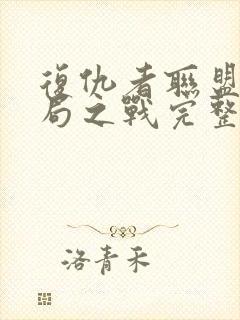 復仇者聯盟
局之戰完整
洛青禾